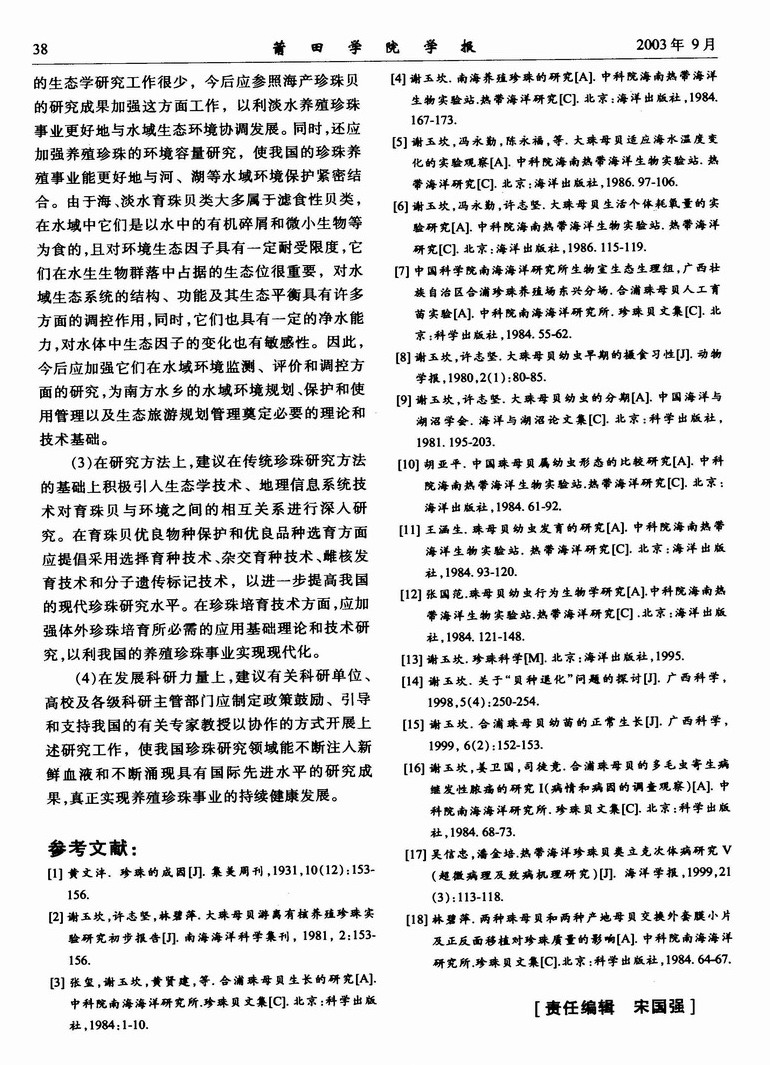 38
莆田学院学报
2003年9月
的生态学研究工作很少，今后应参照海产珍珠贝
的研究成果加强这方面工作，以利淡水养殖珍珠
事业更好地与水域生态环境协调发展。同时,还应
加强养殖珍珠的环境容量研究，使我国的珍珠养
殖事业能更好地与河、湖等水域环境保护紧密结
合。由于海、淡水育珠贝类大多属于滤食性贝类，
在水域中它们是以水中的有机碎屑和微小生物等
为食的,且对环境生态因子具有一定耐受限度,它
们在水生生物群落中占据的生态位很重要，对水
域生态系统的结构、功能及其生态平衡具有许多
方面的调控作用,同时,它们也具有一定的净水能
力,对水体中生态因子的变化也有敏感性。因此，
今后应加强它们在水域环境监测、评价和调控方
面的研究,为南方水乡的水域环境规划、保护和使
用管理以及生态旅游规划管理奠定必要的理论和
技术基础。
(3)在研究方法上,建议在传统珍珠研究方法
的基础上积极引入生态学技术、地理信息系统技
术对育珠贝与环境之间的相互关系进行深入研
究。在育珠贝优良物种保护和优良品种选育方面
应提倡采用选择育种技术、杂交育种技术、雌核发
育技术和分子遗传标记技术，以进一步提高我国
的现代珍珠研究水平。在珍珠培育技术方面,应加
强体外珍珠培育所必需的应用基础理论和技术研
究,以利我国的养殖珍珠事业实现现代化。
(4)在发展科研力量上,建议有关科研单位、
高校及各级科研主管部门应制定政策鼓励、引导
和支持我国的有关专家教授以协作的方式开展上
述研究工作，使我国珍珠研究领域能不断注入新
鲜血液和不断涌现具有国际先进水平的研究成
果,真正实现养殖珍珠事业的持续健康发展。
参考文献：
[1] 黄文沣. 珍珠的成因[J]. 集美周刊,1931,10(12):153-
156.
[2] 谢玉坎,许志坚,林碧萍.大珠母贝游离有核养殖珍珠实
验研究初步报告[J]. 南海海洋科学集刊, 1981, 2:153-
156.
[3] 张玺,谢玉坎,黄贤建,等. 合浦珠母贝生长的研究[A].
中科院南海海洋研究所.珍珠贝文集[C]. 北京:科学出版
社,1984:1-10.
[4] 谢玉坎. 南海养殖珍珠的研究[A]. 中科院海南热带海洋
生物实验站.热带海洋研究[C]. 北京:海洋出版社,1984.
167-173.
[5] 谢玉坎,冯永勤,陈永福,等. 大珠母贝适应海水温度变
化的实验观察[A]. 中科院海南热带海洋生物实验站. 热
带海洋研究[C]. 北京:海洋出版社,1986. 97-106.
[6] 谢玉坎,冯永勤,许志坚. 大珠母贝生活个体耗氧量的实
验研究[A]. 中科院海南热带海洋生物实验站. 热带海洋
研究[C]. 北京:海洋出版社,1986. 115-119.
[7] 中国科学院南海海洋研究所生物室生态生理组,广西壮
族自治区合浦珍珠养殖场东兴分场. 合浦珠母贝人工育
苗实验[A]. 中科院南海海洋研究所. 珍珠贝文集[C]. 北
京:科学出版社,1984. 55-62.
[8] 谢玉坎,许志坚.大珠母贝幼虫早期的摄食习性[J]. 动物
学报,1980,2(1):80-85.
[9] 谢玉坎,许志坚. 大珠母贝幼虫的分期[A]. 中国海洋与
湖沼学会. 海洋与湖沼论文集[C]. 北京:科学出版社,
1981. 195-203.
[10] 胡亚平. 中国珠母贝属幼虫形态的比较研究[A]. 中科
院海南热带海洋生物实验站.热带海洋研究[C]. 北京:
海洋出版社,1984. 61-92.
[11] 王涵生. 珠母贝幼虫发育的研究[A]. 中科院海南热带
海洋生物实验站. 热带海洋研究[C]. 北京:海洋出版
社,1984. 93-120.
[12] 张国范.珠母贝幼虫行为生物学研究[A].中科院海南热
带海洋生物实验站.热带海洋研究[C] .北京:海洋出版
社,1984. 121-148.
[13] 谢玉坎. 珍珠科学[M]. 北京:海洋出版社,1995.
[14] 谢玉坎. 关于“贝种退化”问题的探讨[J]. 广西科学,
1998,5(4):250-254.
[15] 谢玉坎. 合浦珠母贝幼苗的正常生长[J]. 广西科学,
1999, 6(2):152-153.
[16] 谢玉坎,姜卫国,司徒竞. 合浦珠母贝的多毛虫寄生病
继发性脓疡的研究 I(病情和病因的调查观察)[A]. 中
科院南海海洋研究所. 珍珠贝文集[C]. 北京:科学出版
社,1984. 68-73.
[17] 吴信忠,潘金培.热带海洋珍珠贝类立克次体病研究 V
(超微病理及致病机理研究)[J]. 海洋学报,1999,21
(3):113-118.
[18] 林碧萍. 两种珠母贝和两种产地母贝交换外套膜小片
及正反面移植对珍珠质量的影响[A]. 中科院南海海洋
研究所.珍珠贝文集[C].北京:科学出版社,1984. 64-67.
[责任编辑 宋国强]